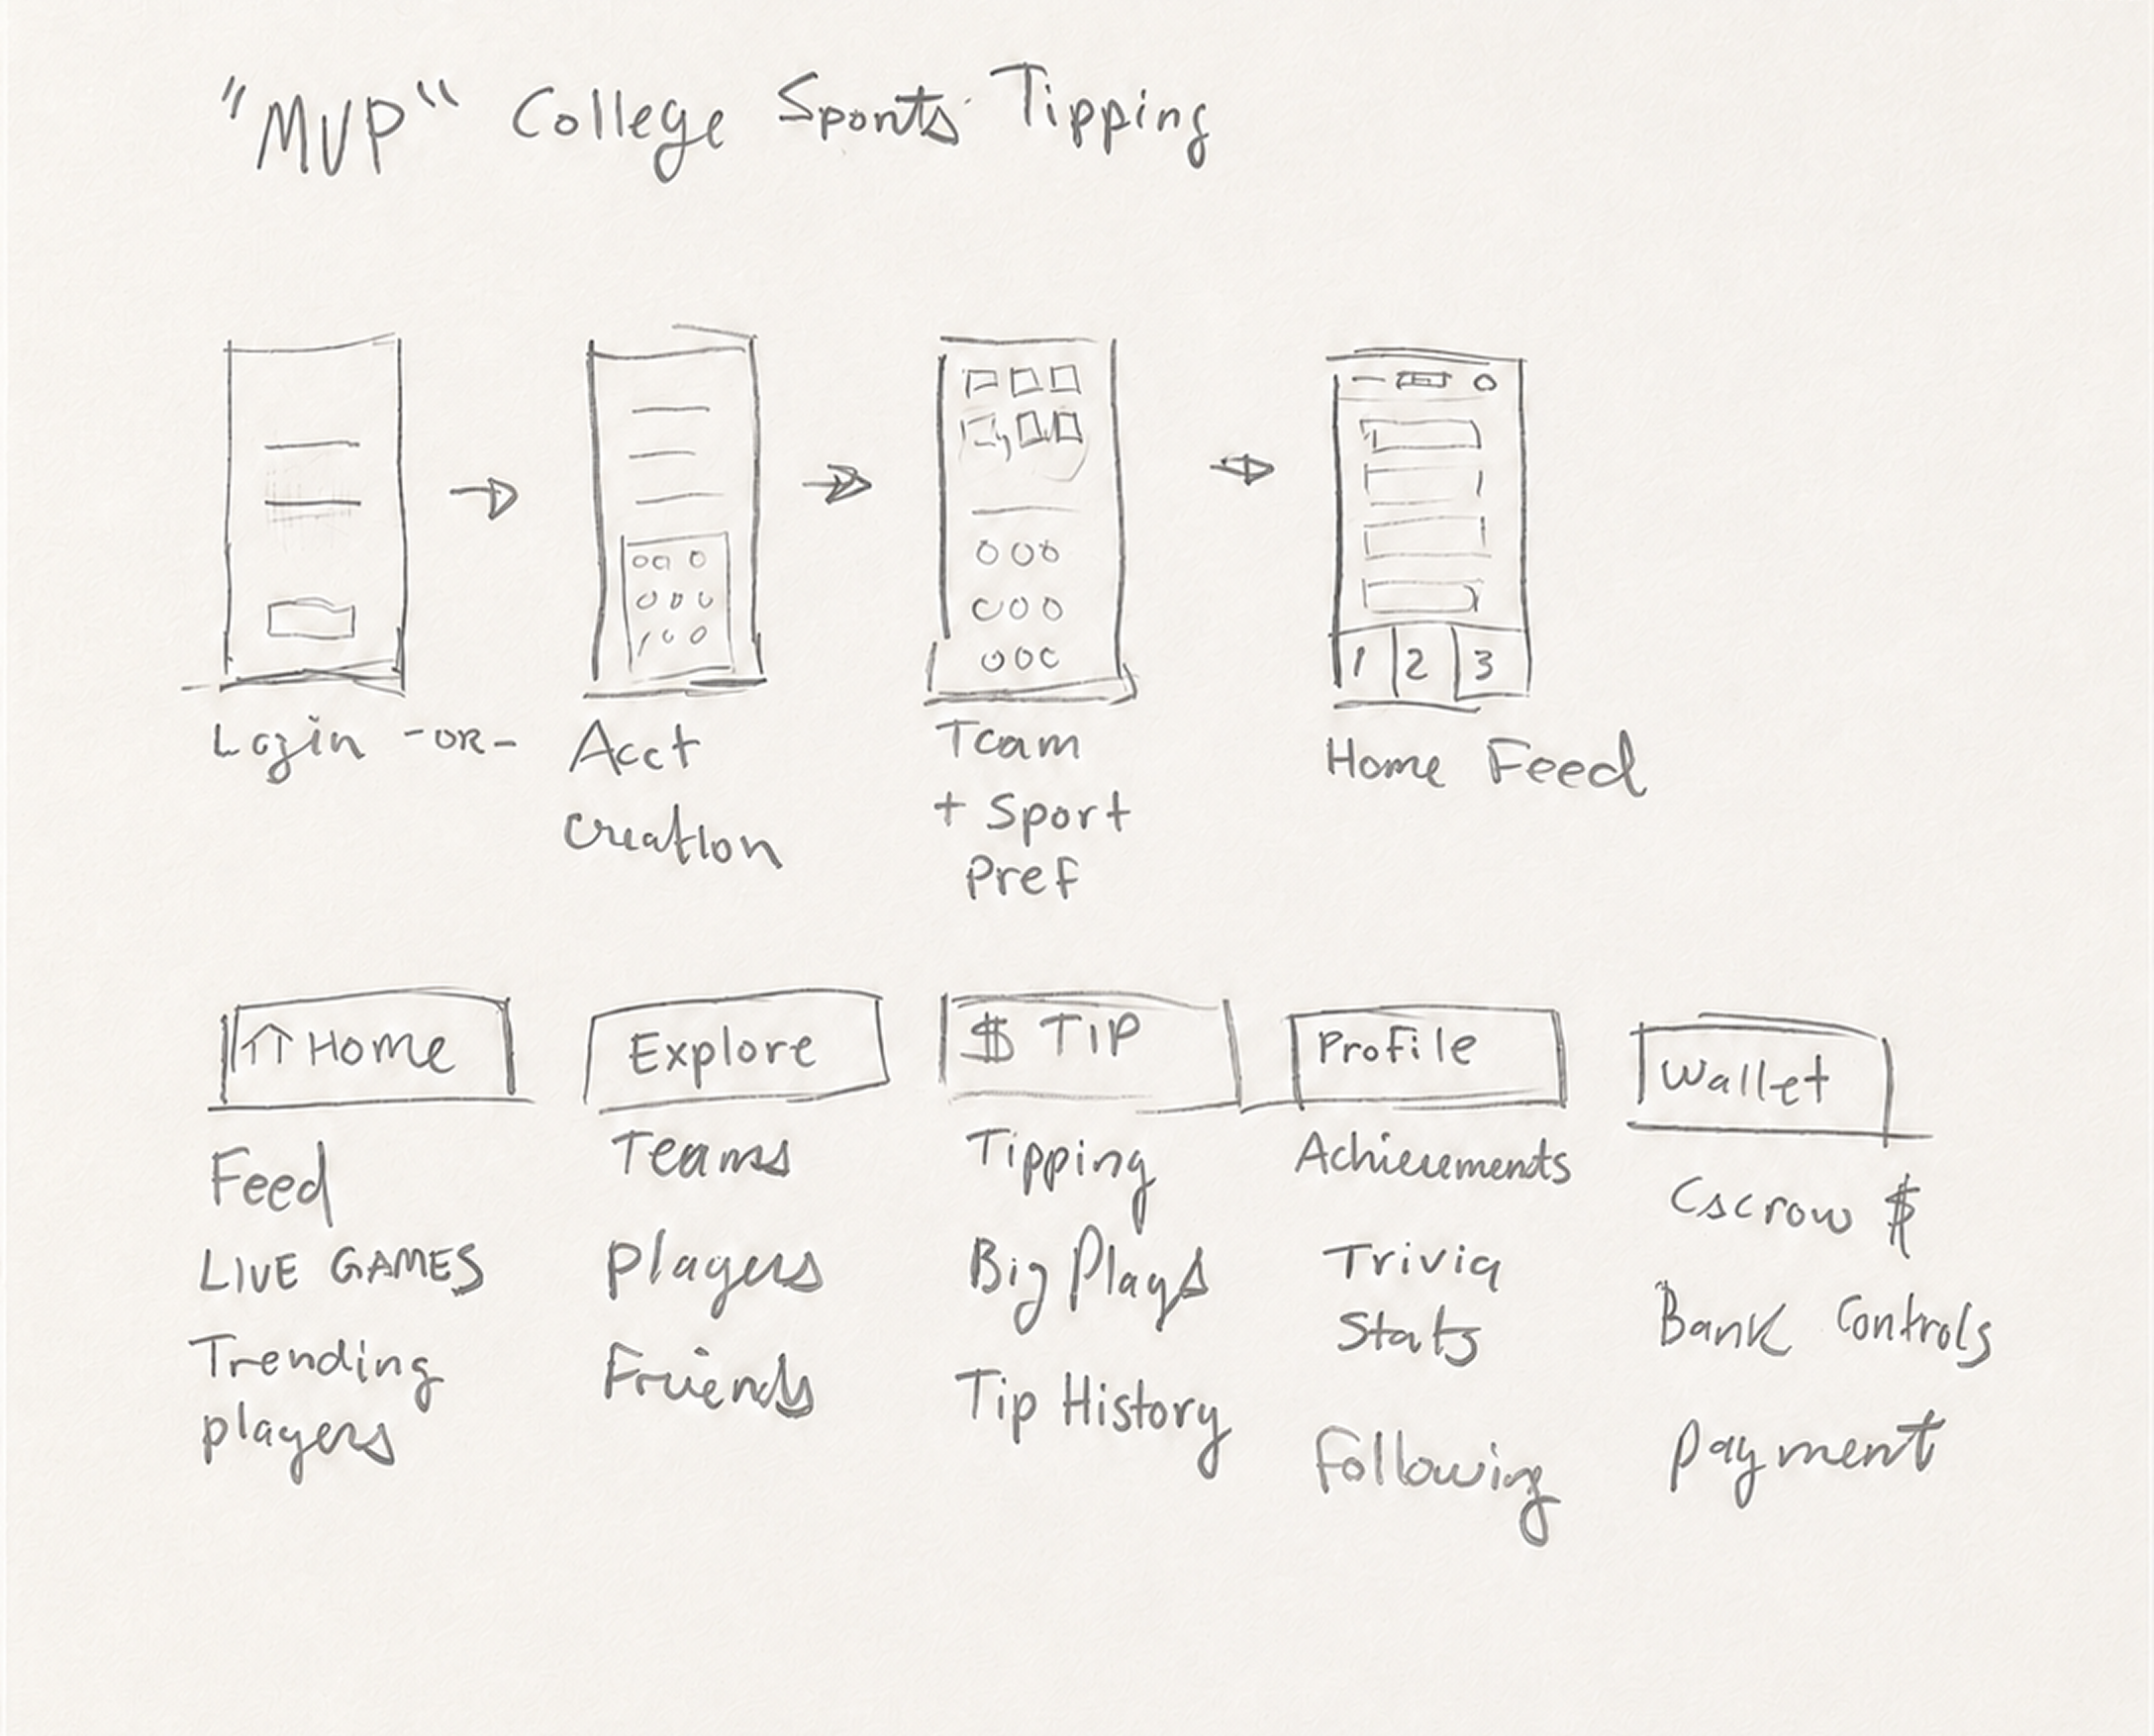 "MVP" College Sports Tipping
1 2 3
Login -OR- Acct Creation
Team + Sport Pref
Home Feed
Home
Feed
LIVE GAMES
Trending
players
Explore
Teams
players
Friends
$ TIP
Tipping
Big Plays
Tip History
Profile
Achievements
Trivia
Stats
Following
Wallet
Escrow $
Bank Controls
payment